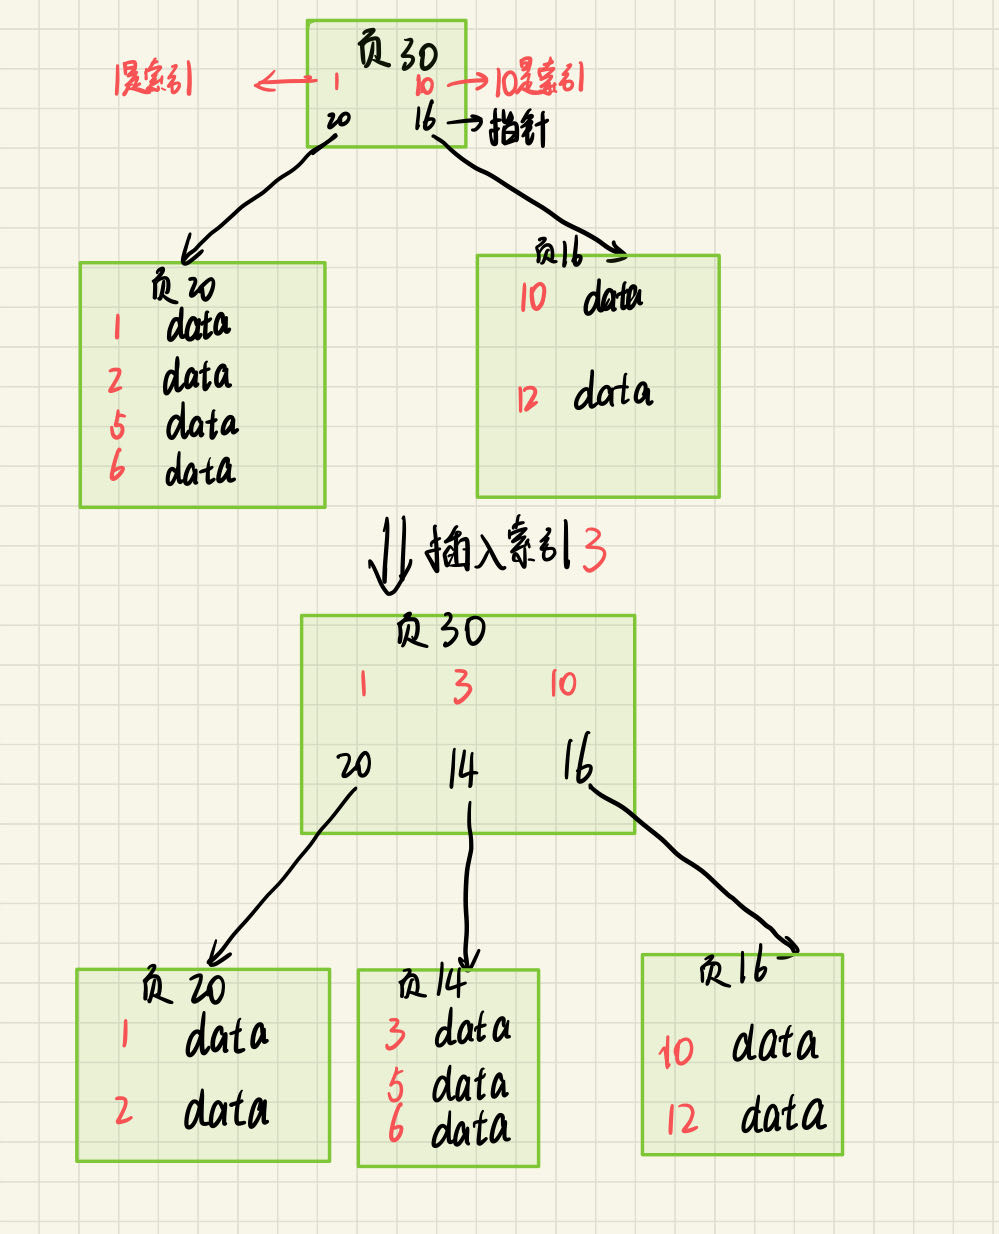 页30
1是索引 1 10 10是索引
20 16 指针
页20
1 data
2 data
5 data
6 data
页16
10 data
12 data
插入索引3
页30
1 3 10
20 14 16
页20
1 data
2 data
页14
3 data
5 data
6 data
页16
10 data
12 data